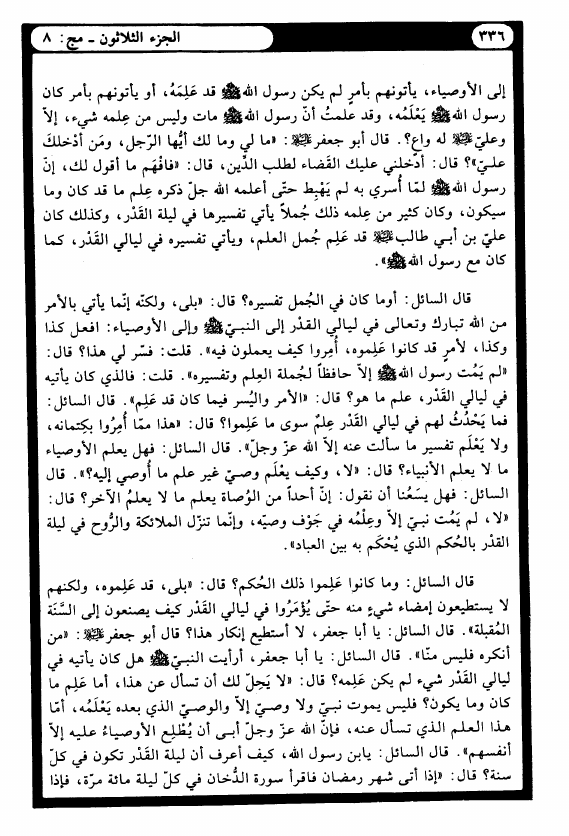 ٣٣٦
الجزء الثلاثون - مج: ٨
إلى الأوصياء، يأتونهم بأمرٍ لم يكن رسول اللهﷺ قد عَلِمَهُ، أو يأتونهم بأمر كان
رسول اللهﷺ يَعْلَمُه، وقد علمتُ أنّ رسول اللهﷺ مات وليس من عِلمه شيء، إلاّ
وعليّ؏ له واعٍ؟. قال أبو جعفر؏: «ما لي وما لك أيُّها الرّجل، ومَن أدْخلكَ
عليّ»؟ قال: أدْخلني عليك القَضاء لطلب الدِّين، قال: «فافْهَم ما أقول لك، إنّ
رسول اللهﷺ لمّا أُسري به لم يَهْبِط حتّى أعلمه الله جلّ ذكره عِلم ما قد كان وما
سيكون، وكان كثير من عِلمه ذلك جُملاً يأتي تفسيرها في ليلة القَدْر، وكذلك كان
عليّ بن أبي طالب؏ قد عَلِم جُمل العلم، ويأتي تفسيره في ليالي القَدْر، كما
كان مع رسول اللهﷺ».
قال السائل: أوما كان في الجُمل تفسيره؟ قال: «بلى، ولكنّه إنّما يأتي بالأمر
من الله تبارك وتعالى في ليالي القدْر إلى النبيّﷺ وإلى الأوصياء: افعل كذا
وكذا، لأمرٍ قد كانوا عَلِموه، أُمِروا كيف يعملون فيه». قلت: فسّر لي هذا؟ قال:
«لم يَمُت رسول اللهﷺ إلاّ حافظاً لجُملة العِلم وتفسيره». قلت: فالذي كان يأتيه
في ليالي القَدْر، علم ما هو؟ قال: «الأمر واليُسر فيما كان قد عَلِم». قال السائل:
فما يَحْدُثُ لهم في ليالي القَدْر عِلمٌ سوى ما عَلِموا؟ قال: «هذا ممّا أُمِرُوا بكِتمانه،
ولا يَعْلَم تفسير ما سألت عنه إلاّ الله عزّ وجلّ». قال السائل: فهل يعلم الأوصياء
ما لا يعلم الأنبياء؟ قال: «لا، وكيف يعْلَم وصيّ غير علم ما أُوصي إليه؟». قال
السائل: فهل يسَعُنا أن نقول: إنّ أحداً من الوُصاة يعلم ما لا يعلمُ الآخر؟ قال:
«لا، لم يَمُت نبيّ إلاّ وعِلْمُه في جَوْف وصيّه، وإنّما تنزّل الملائكة والرُّوح في ليلة
القدْر بالحُكم الذي يُحْكَم به بين العباد».
قال السائل: وما كانوا عَلِموا ذلك الحُكم؟ قال: «بلى، قد عَلِموه، ولكنهم
لا يستطيعون إمضاء شيءٍ منه حتّى يُؤْمَرُوا في ليالي القَدْر كيف يصنعون إلى السَّنَة
المُقبلة». قال السائل: يا أبا جعفر، لا أستطيع إنكار هذا؟ قال أبو جعفر؏: «من
أنكره فليس منّا». قال السائل: يا أبا جعفر، أرأيت النبيّﷺ هل كان يأتيه في
ليالي القَدْر شيء لم يكن عَلِمه؟ قال: «لا يَحِلّ لك أن تسأل عن هذا، أما عَلِم ما
كان وما يكون؟ فليس يموت نبيّ ولا وصيّ إلاّ والوصيّ الذي بعده يَعْلَمُه، أمّا
هذا العلم الذي تسأل عنه، فإنّ الله عزّ وجلّ أبى أن يُطْلِع الأوصياءُ عليه إلاّ
أنفسهم». قال السائل: يابن رسول الله، كيف أعرف أن ليلة القَدْر تكون في كلّ
سنة؟ قال: «إذا أتى شهر رمضان فاقرأ سورة الدُّخان في كلّ ليلة مائة مرّة، فإذا